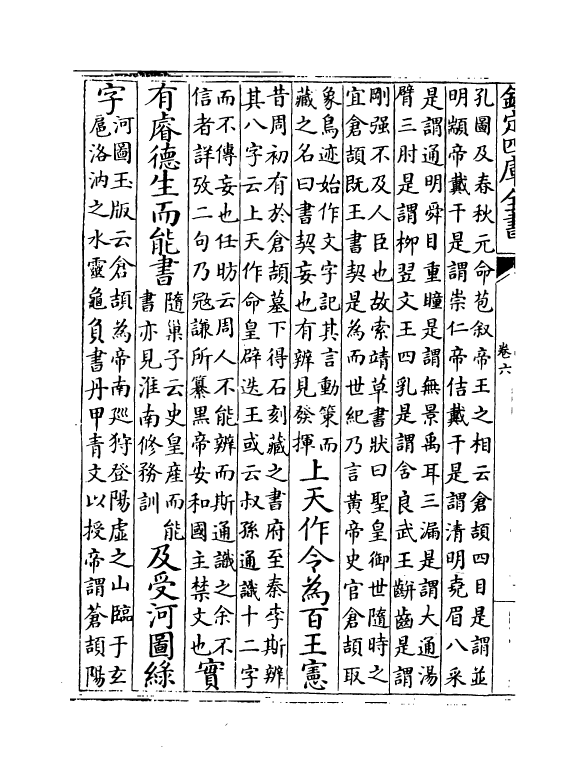 欽定四庫全書
卷六
孔圖及春秋元命苞叙帝王之相云倉頡四目是謂並
明顓帝戴干是謂崇仁帝佶戴干是謂清明堯眉八采
是謂通明舜目重瞳是謂無景禹耳三漏是謂大通湯
臂三肘是謂柳翌文王四乳是謂含良武王齞齒是謂
剛强不及人臣也故索靖草書狀曰聖皇御世隨時之
宜倉頡既王書契是為而世紀乃言黃帝史官倉頡取
象鳥迹始作文字記其言動策而
藏之名曰書契妄也有辨見發揮
上天作令為百王憲
昔周初有於倉頡墓下得石刻藏之書府至秦李斯辨
其八字云上天作命皇辟迭王或云叔孫通識十二字
而不傳妄也任昉云周人不能辨而斯通識之余不
信者詳攷二句乃宼謙所纂黒帝安和國主禁文也
實
有睿德生而能書
隨巢子云史皇産而能
書亦見淮南修務訓
及受河圖綠
字
河圖玉版云倉頡為帝南廵狩登陽虛之山臨于玄
扈洛汭之水靈龜負書丹甲青文以授帝謂蒼頡陽